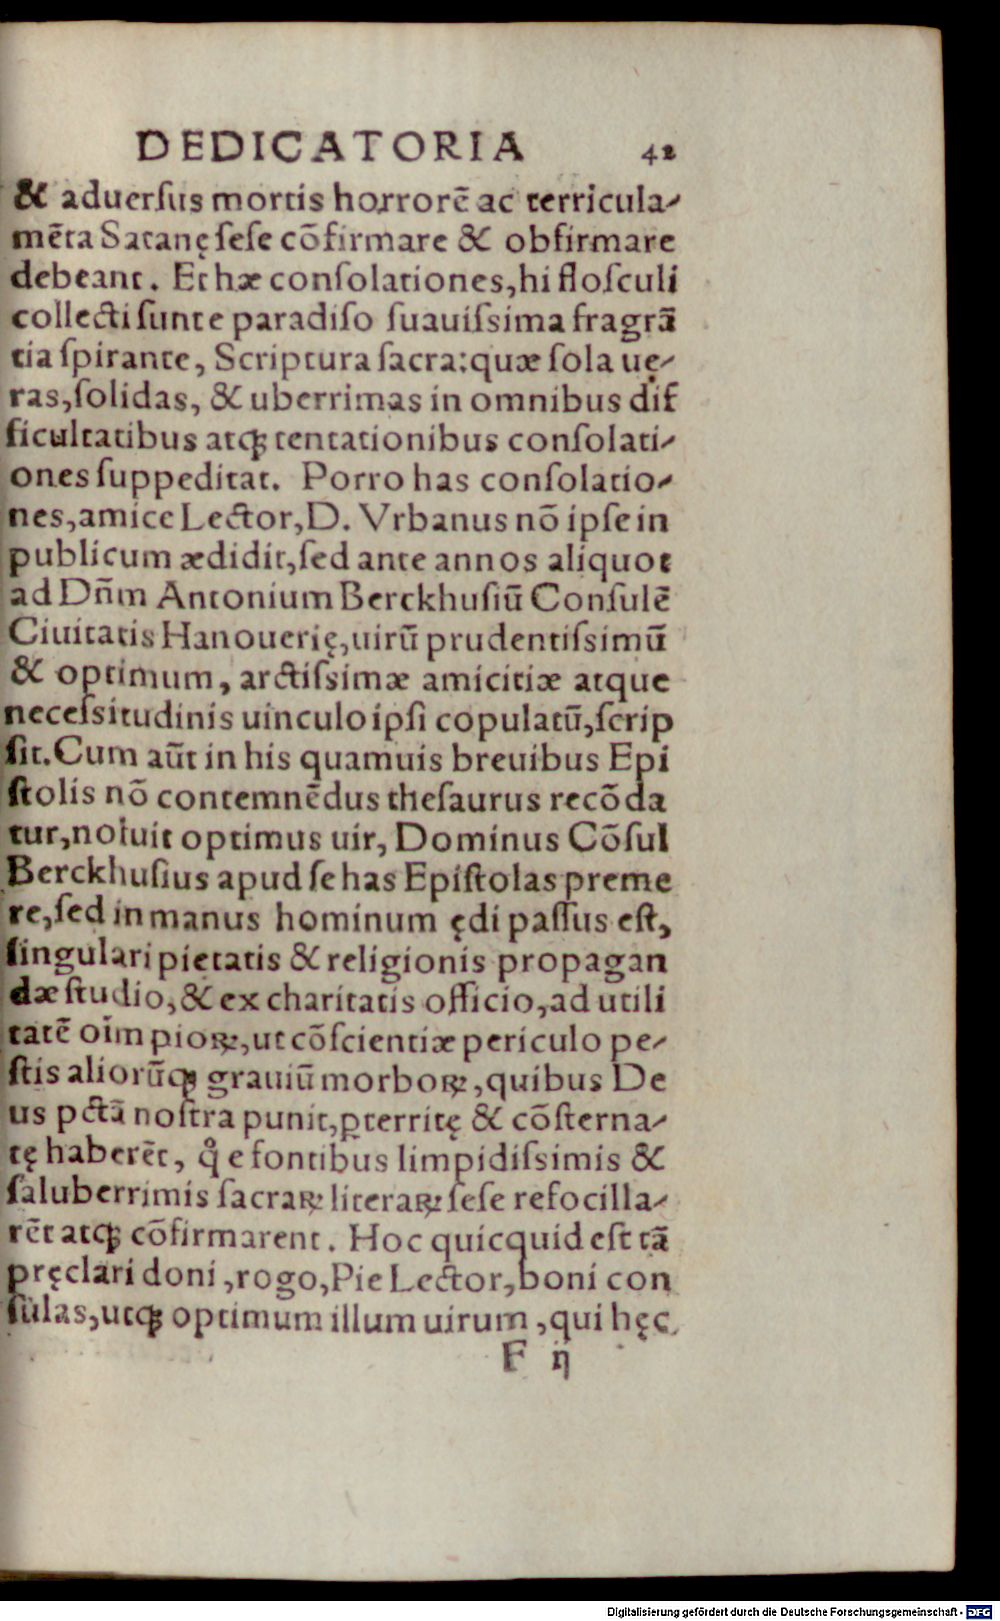 DEDICATORIA 42
& aduerſus mortis horrorē ac terricula-
mēta Satanę ſeſe cōfirmare & obfirmare
debeant. Et hæ conſolationes, hi floſculi
collecti ſunt e paradiſo ſuauiſsima fragrā
tia ſpirante, Scriptura ſacra: quæ ſola uę-
ras, ſolidas, & uberrimas in omnibus dif
ficultatibus atq; tentationibus conſolati-
ones ſuppeditat. Porro has conſolatio-
nes, amice Lector, D. Vrbanus nō ipſe in
publicum ædidit, ſed ante annos aliquot
ad Dn̄m Antonium Berckhuſiū Conſulē
Ciuitatis Hanouerię, uirū prudentiſsimū
& optimum, arctiſsimæ amicitiæ atque
neceſsitudinis uinculo ipſi copulatū, ſcrip
ſit. Cum aūt in his quamuis breuibus Epi
ſtolis nō contemnēdus theſaurus recōda
tur, noluit optimus uir, Dominus Cōſul
Berckhuſius apud ſe has Epiſtolas preme
re, ſed in manus hominum ędi paſſus eſt,
ſingulari pietatis & religionis propagan
dæ ſtudio, & ex charitatis officio, ad utili
tatē oīm pioꝝ, ut cōſcientiæ periculo pe-
ſtis aliorūq; grauiū morboꝝ, quibus De
us pctā noſtra punit, ꝑterritę & cōſterna-
tę haberēt, qͦ e fontibus limpidiſsimis &
ſaluberrimis ſacraꝝ literaꝝ ſeſe refocilla-
rēt atq; cōfirmarent. Hoc quicquid eſt tā
pręclari doni, rogo, Pie Lector, boni con
ſulas, utq; optimum illum uirum, qui hęc
F ij
Digitalisierung gefördert durch die Deutsche Forschungsgemeinschaft - DFG